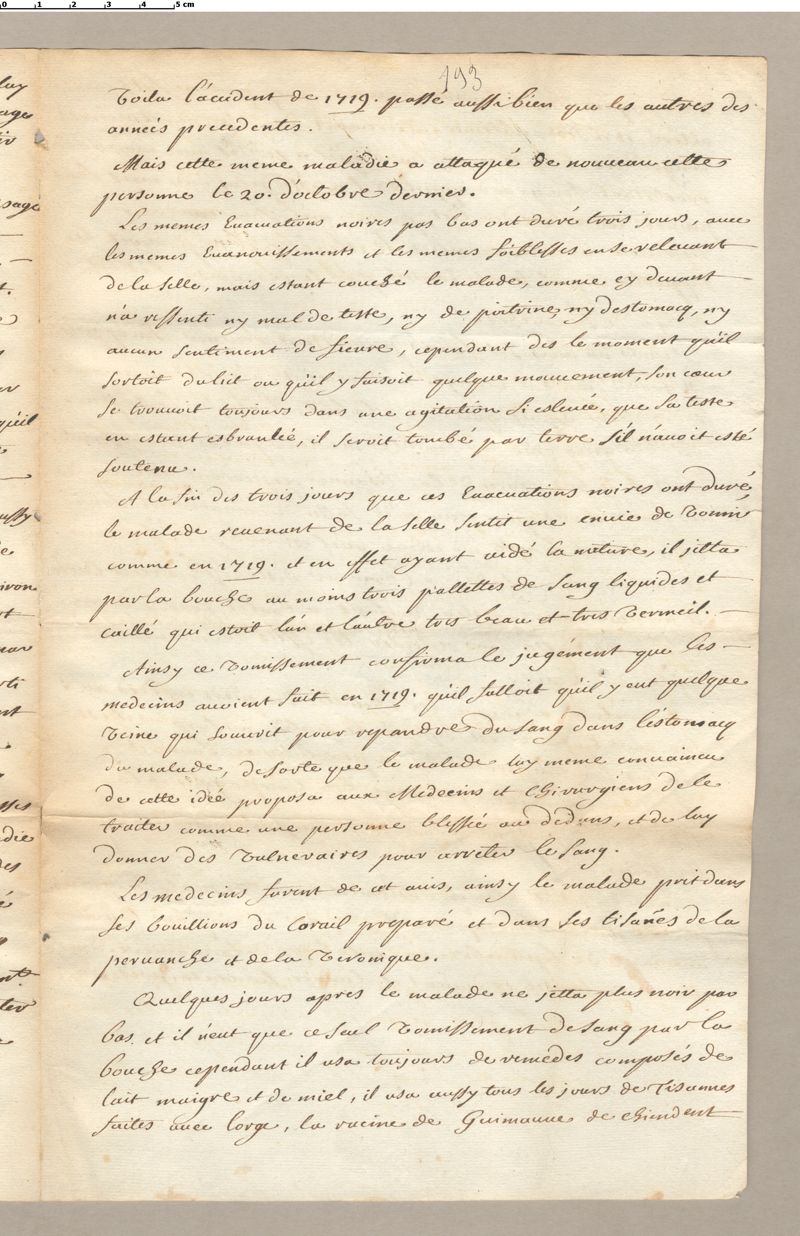 193
Voila l'accident de 1719. passé aussi bien que les autres des
anneés precedentes.
Mais cette meme maladie a attaqué de nouveau cette
personne le 20. d'octobre dernier.
Les memes Evacuations noires par bas ont duré trois jours, avec
les memes Evanouissements et les memes foiblesses en se relevant
de la selle, mais estant couché le malade, comme cy devant
n'a ressenti ny mal de teste, ny de poitrine, ny destomacq, ny
aucun sentiment de fievre, cependant des le moment qu'il
sortoit du lict ou qu'il y faisoit quelque mouvement, son cœur
se trouvoit toujours dans une agitation si eslevée, que sa teste
en estant esbranlée, il seroit tombé par terre s'il n'avoit esté
soutenu.
A la fin des trois jours que ces Evacuations noires ont duré,
le malade revenant de la selle sentit une envie de vomir
comme en 1719. et en effet ayant aidé la nature, il jetta
par la bouche au moins trois pallettes de sang liquides et
caillé qui estoit l'un et l'autre tres beau et tres vermeil.
Ainsy ce vomissement confirma le jugément que les
medecins avoient fait en 1719. qu'il falloit qu'il y eut quelque
veine qui s'ouvrit pour repandre du sang dans l'estomacq
du malade, de sorte que le malade luy meme convaincu
de cette idée proposa aux Medecins et chirurgiens de le
traiter comme une personne blessée au dedans, et de luy
donner des vulneraires pour arreter le sang.
Les medecins furent de cet avis, ainsy le malade prit dans
ses bouillions du corail preparé et dans ses tisanes de la
pervanche et de la veronique.
Quelques jours apres le malade ne jetta plus noir par
bas et il n'eut que ce seul vomissement de sang par la
bouche cependant il usa toujours de remedes composés de
lait maigre et de miel, il usa aussy tous les jours de Tisannes
faites avec lorge, la racine de Guimauve de chiendent